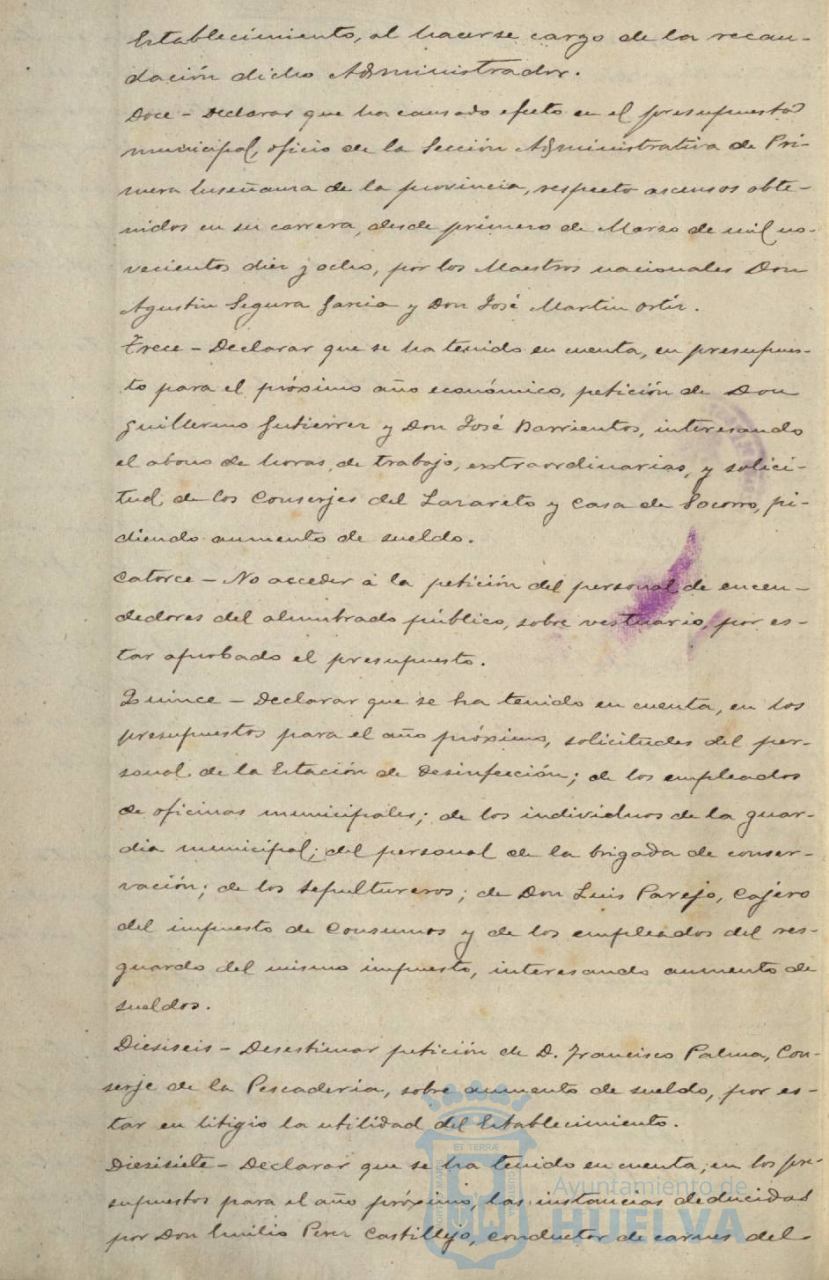 Establecimiento, al hacerse cargo de la recau-
dación dicho Administrador.
Doce - Declarar que ha causado efecto en el presupuesto
municipal, oficio de la Sección Administrativa de Pri-
mera Enseñanza de la provincia, respecto ascensos obte-
nidos en su carrera, desde primero de Marzo de mil no-
vecientos diez y ocho, por los Maestros nacionales Don
Agustin Segura Garcia y Don José Martin Ortiz.
Trece - Declarar que se ha tenido en cuenta, en presupues-
to para el próximo año económico, petición de Don
Guillermo Gutierrez y Don José Barrientos, interesando
el abono de horas, de trabajo, extraordinarias, y solici-
tud, de los Conserjes del Lazareto y Casa de Socorro, pi-
diendo aumento de sueldo.
Catorce - No acceder á la petición del personal de encen-
dedores del alumbrado público, sobre vestuario, por es-
tar aprobado el presupuesto.
Quince - Declarar que se ha tenido en cuenta, en los
presupuestos para el año próximo, solicitudes del per-
sonal de la Estación de Desinfección; de los empleados
de oficinas municipales; de los individuos de la guar-
dia municipal; del personal de la brigada de conser-
vación; de los sepultureros; de Don Luis Parejo, Cajero
del impuesto de Consumos y de los empleados del res-
guardo del mismo impuesto, interesando aumento de
sueldos.
Diesiseis - Desestimar petición de D. Francisco Palma, Con-
serje de la Pescaderia, sobre aumento de sueldo, por es-
tar en litigio la utilidad del Establecimiento.
Diesisiete - Declarar que se ha tenido en cuenta, en los pre-
supuestos para el año próximo, las instancias deducidas
por Don Emilio Perez Castillejo, conductor de carnes del
Ayuntamiento de
HUELVA